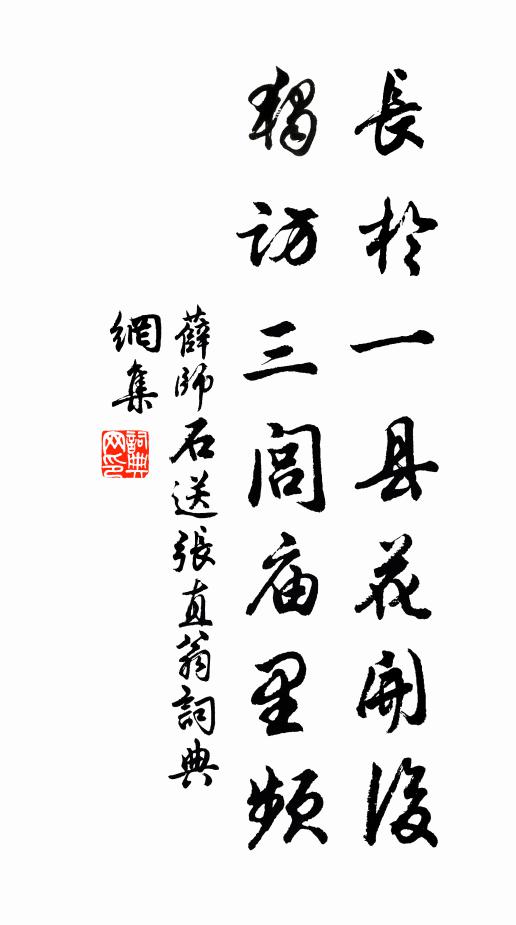 長於一县花開後
獨訪三閭庙里頻
薛師石送張直翁詞典
網集
詞典網印